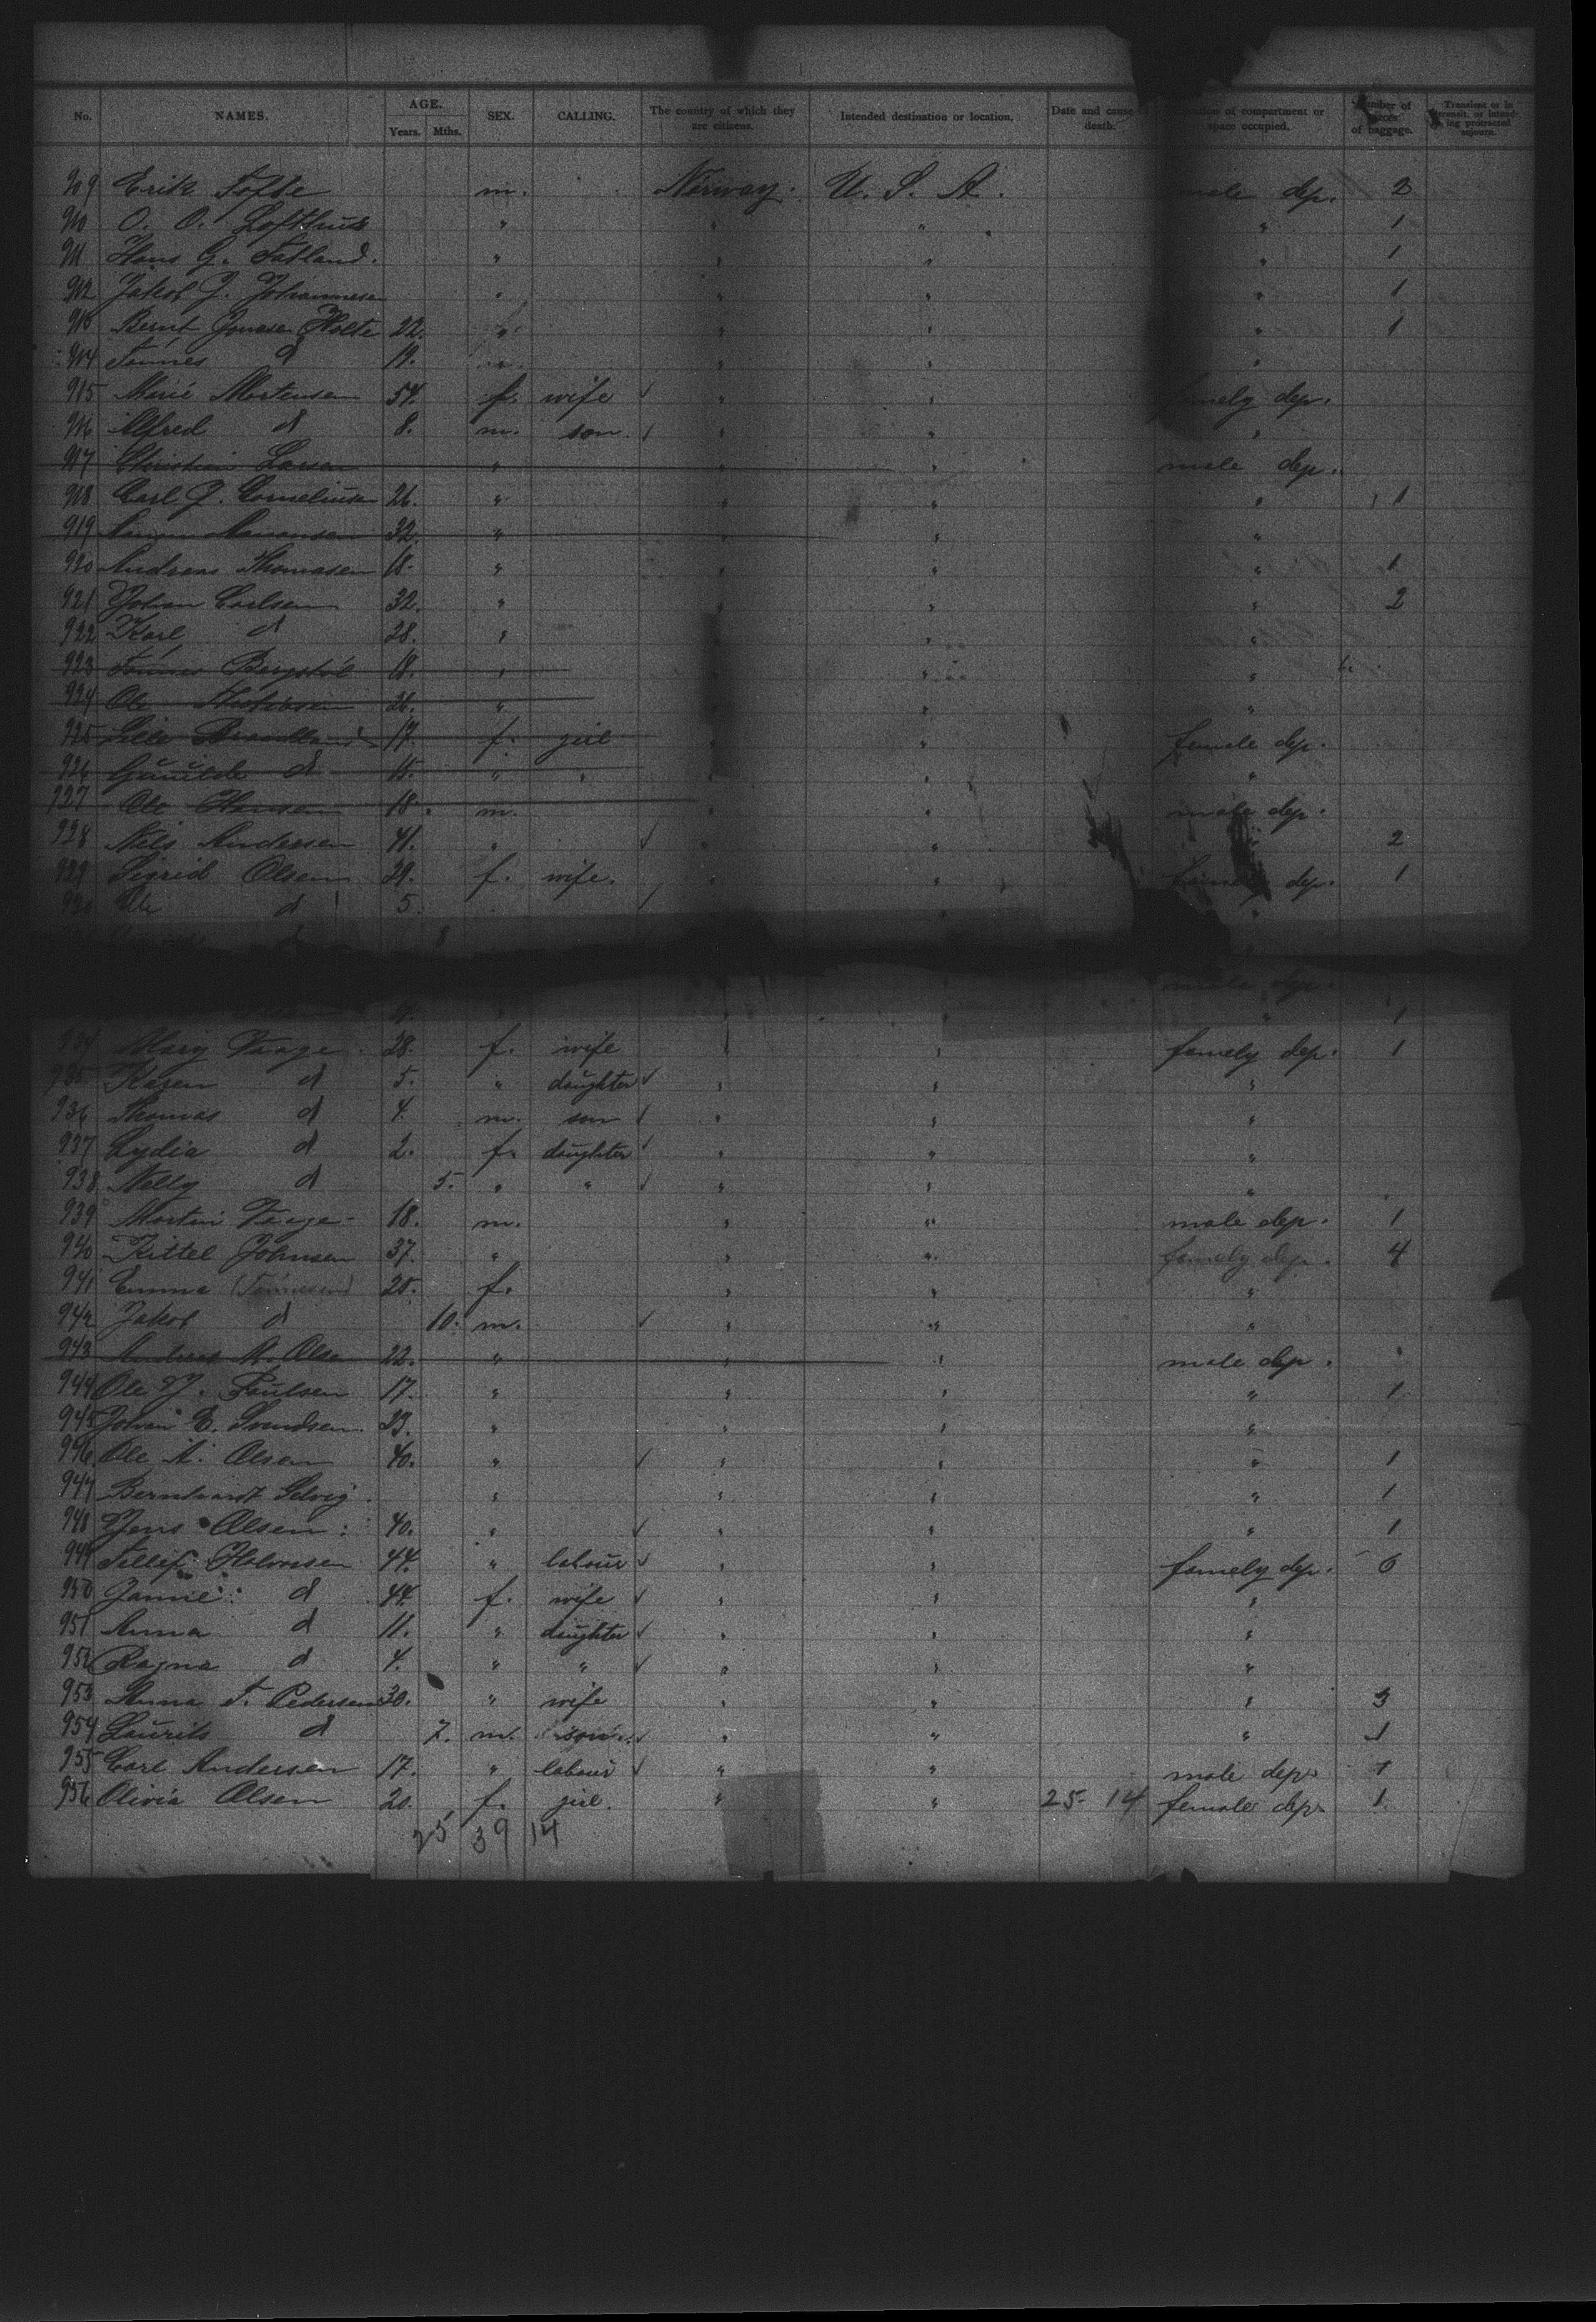 No. NAMES. AGE. Years. Mths. SEX. CALLING. The country of which they are citizens. Intended destination or location. Date and cause death. of compartment or space occupied. Number of pieces of baggage. Transient or in transit, or intending protracted sojourn.
909 Erik Tofte m. Norway. U. S. A. male dep. 2
910 O. O. Lofthus " " " " 1
911 Hans G. Fatland. " " " " 1
912 Jakob J. Johannesen " " " " 1
913 Bernt Jonasen Holte 22. " " " " 1
914 Tønnes d 19. " " "
915 Marie Mortensen 54. f. wife ✓ " " famely dep.
916 Alfred d 8. m. son. ✓ " " "
917 Christian Larsen " " " male dep.
918 Carl J. Corneliusen 26. " " " " 1
919 32. " " " "
920 Andreas Thomasen 18. " " " " 1
921 Johan Carlsen 32. " " " " 2
922 Karl d 28. " " " "
923 Tønnes Bergstøl 18. " " " "
924 Ole 26. " " "
925 17. f. girl " " female dep.
926 Gunilde d 15. " " " " "
927 Ole Hansen 18. m. " " male dep.
928 Nils Andersen 41. " ✓ " " " 2
929 Sigrid Olsen 39. f. wife. " " dep. 1
930 Ole d 5. ✓ " "
d 8
male dep.
" " " 1
934 Mary Vaage 28. f. wife " " famely dep. 1
935 Karen d 5. " daughter ✓ " " "
936 Thomas d 4. m. son ✓ " " "
937 Lydia d 2. f. daughter ✓ " " "
938 Nelly d 5. " " ✓ " " "
939 Martin Vaage 18. m. " " male dep. 1
940 Kittel Johnsen 37. " " " famely dep. 4
941 Emma (Tønnesen) 25. f. " "
942 Jakob d 10. m. ✓ " " "
943 Andreas M. Olsen 22. " " " male dep.
944 Ole J. Paulsen 17. " " " " 1
945 Johan E. Svendsen. 23. " " " "
946 Ole A. Olsen 40. " ✓ " " " 1
947 Bernhardt Selvig. " " " " 1
948 Jens Olsen 40. " ✓ " " " 1
949 Tellef Halvorsen 44. " labour ✓ " " famely dep. 6
950 d 44. f. wife ✓ " " "
951 Anna d 11. " daughter ✓ " " "
952 Ragna d 4. " " ✓ " " "
953 Anna T. Pedersen 30. " wife " " " 3
954 Laurits d 7. m. son. ✓ " " " 1
955 Carl Andersen 17. " labour ✓ " " male dep. 1
956 Olivia Olsen 20. f. girl. " " 25 14 female dep. 1
25 39 14